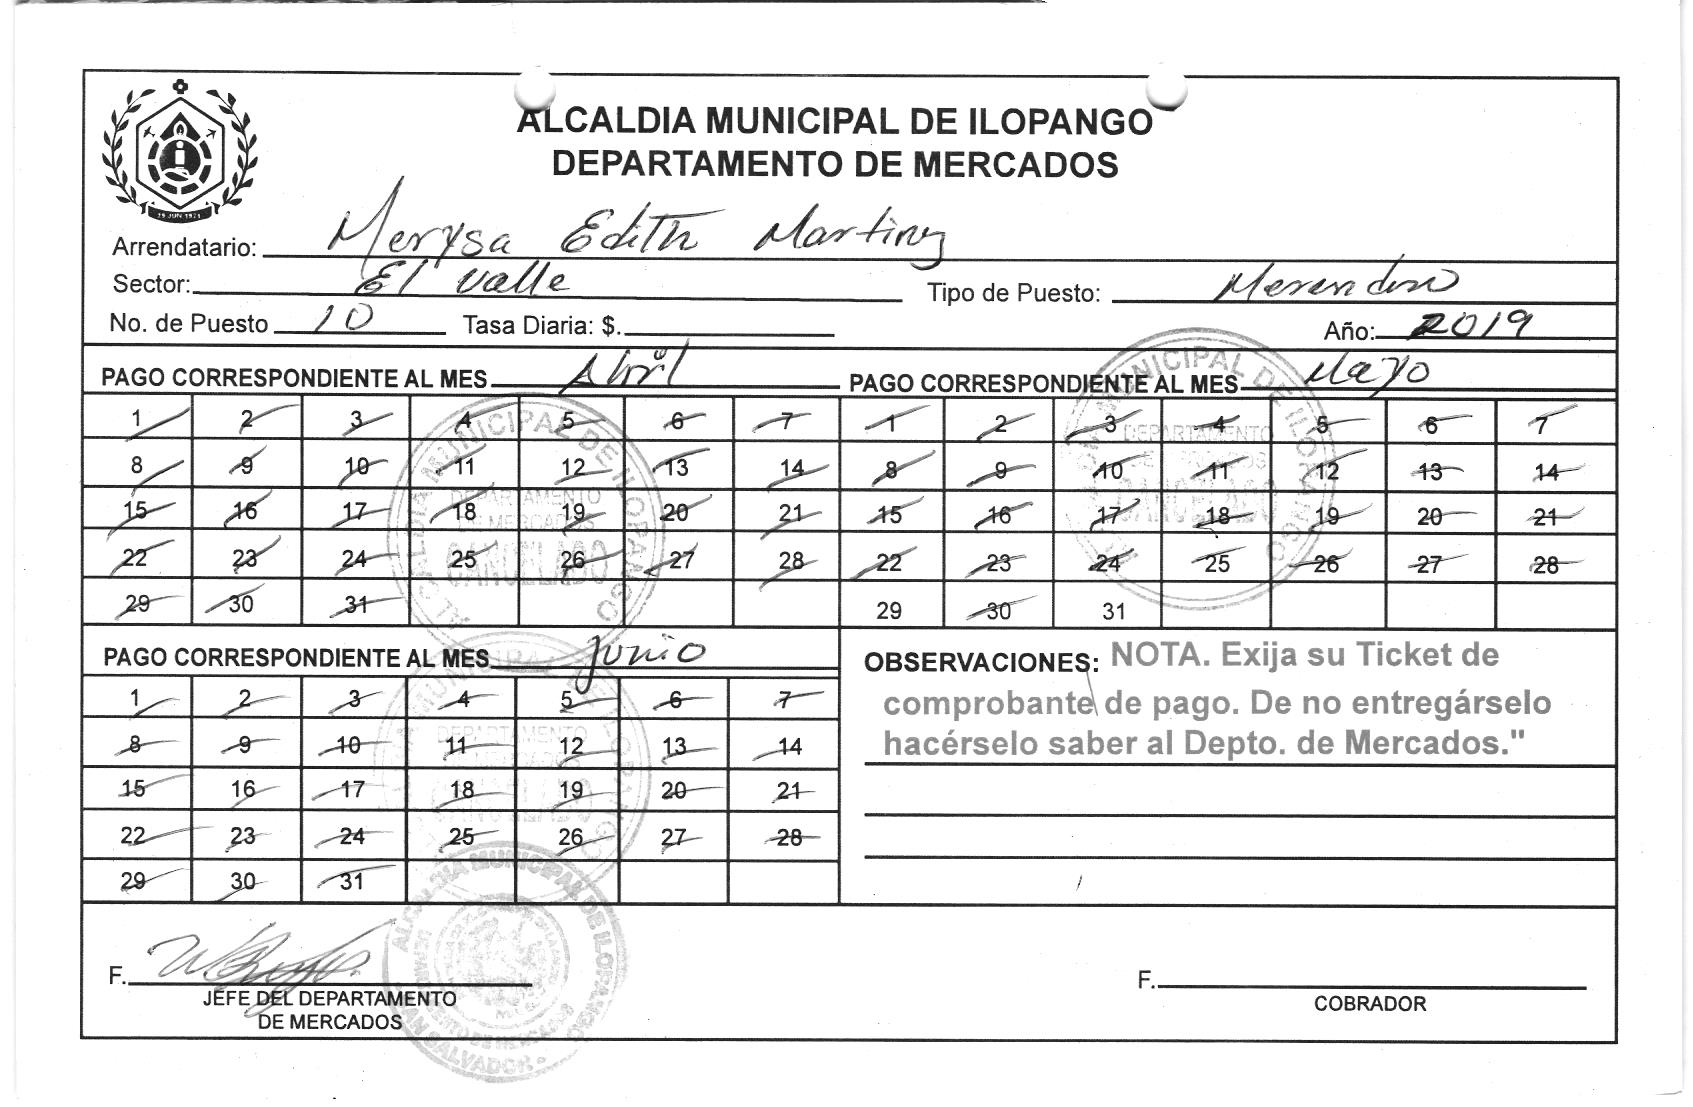 ALCALDIA MUNICIPAL DE ILOPANGO
DEPARTAMENTO DE MERCADOS
19 JUN 1971
Arrendatario: Merysa Edith Martinez
Sector: El Valle Tipo de Puesto:
No. de Puesto 10 Tasa Diaria: $. Año: 2019
PAGO CORRESPONDIENTE AL MES Abril
1 2 3 4 5 6 7
8 9 10 11 12 13 14
15 16 17 18 19 20 21
22 23 24 25 26 27 28
29 30 31
ALCALDIA MUNICIPAL DE ILOPANGO
DEPARTAMENTO
DE MERCADOS
CANCELADO
PAGO CORRESPONDIENTE AL MES Mayo
1 2 3 4 5 6 7
8 9 10 11 12 13 14
15 16 17 18 19 20 21
22 23 24 25 26 27 28
29 30 31
ALCALDIA MUNICIPAL DE ILOPANGO
DEPARTAMENTO
DE MERCADOS
CANCELADO
PAGO CORRESPONDIENTE AL MES Junio
1 2 3 4 5 6 7
8 9 10 11 12 13 14
15 16 17 18 19 20 21
22 23 24 25 26 27 28
29 30 31
ALCALDIA MUNICIPAL DE ILOPANGO
DEPARTAMENTO
DE MERCADOS
CANCELADO
OBSERVACIONES: NOTA. Exija su Ticket de
comprobante de pago. De no entregárselo
hacérselo saber al Depto. de Mercados."
F.
JEFE DEL DEPARTAMENTO
DE MERCADOS
ALCALDIA MUNICIPAL DE ILOPANGO
DEPARTAMENTO DE MERCADOS
SAN SALVADOR
F.
COBRADOR